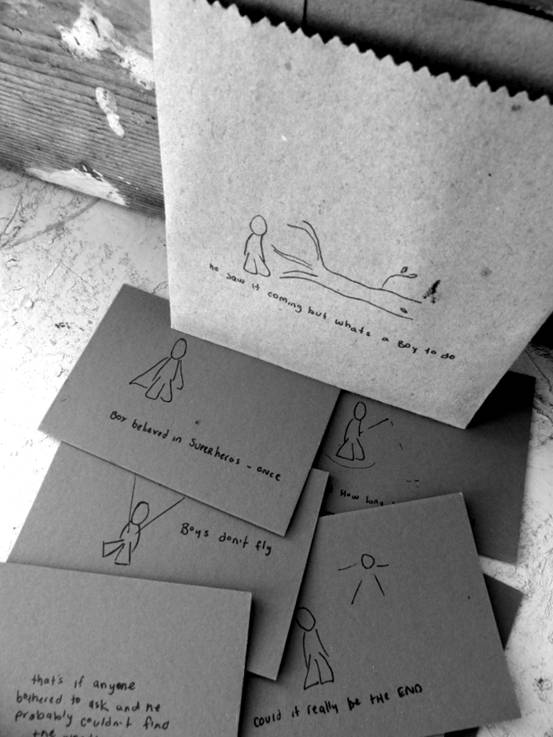 he saw it coming but whats a Boy to do
Boy believed in Superheros - once
How long
Boys don't fly
could it really be the END
that's if anyone
bothered to ask and he
probably couldn't find
the